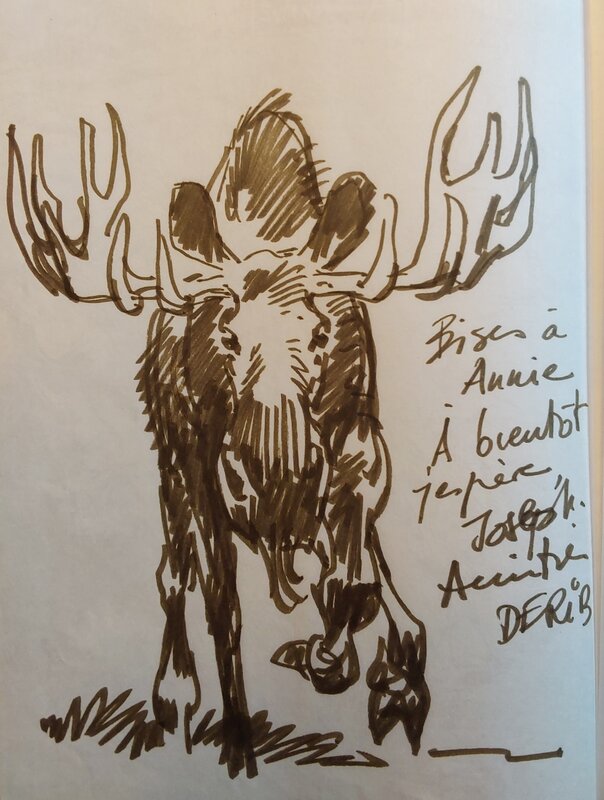 Bises à
Annie
À bientôt
j'espère
Joseph.
Amitié
DERIB